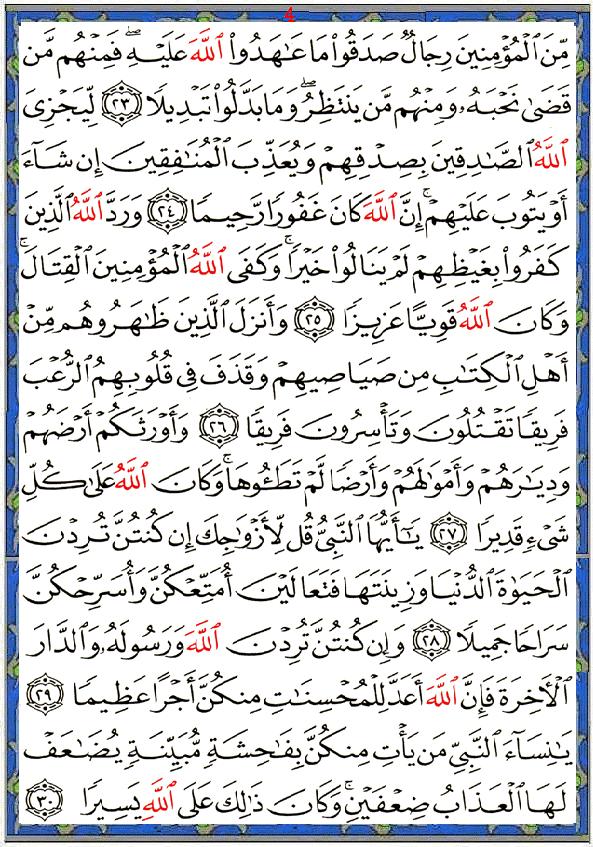 4
مِّنَ ٱلْمُؤْمِنِينَ رِجَالٌ صَدَقُوا۟ مَا عَـٰهَدُوا۟ ٱللَّهَ عَلَيْهِ ۖ فَمِنْهُم مَّن
قَضَىٰ نَحْبَهُۥ وَمِنْهُم مَّن يَنتَظِرُ ۖ وَمَا بَدَّلُوا۟ تَبْدِيلًا ٢٣ لِّيَجْزِىَ
ٱللَّهُ ٱلصَّـٰدِقِينَ بِصِدْقِهِمْ وَيُعَذِّبَ ٱلْمُنَـٰفِقِينَ إِن شَآءَ
أَوْ يَتُوبَ عَلَيْهِمْ ۚ إِنَّ ٱللَّهَ كَانَ غَفُورًا رَّحِيمًا ٢٤ وَرَدَّ ٱللَّهُ ٱلَّذِينَ
كَفَرُوا۟ بِغَيْظِهِمْ لَمْ يَنَالُوا۟ خَيْرًا ۚ وَكَفَى ٱللَّهُ ٱلْمُؤْمِنِينَ ٱلْقِتَالَ ۚ
وَكَانَ ٱللَّهُ قَوِيًّا عَزِيزًا ٢٥ وَأَنزَلَ ٱلَّذِينَ ظَـٰهَرُوهُم مِّنْ
أَهْلِ ٱلْكِتَـٰبِ مِن صَيَاصِيهِمْ وَقَذَفَ فِى قُلُوبِهِمُ ٱلرُّعْبَ
فَرِيقًا تَقْتُلُونَ وَتَأْسِرُونَ فَرِيقًا ٢٦ وَأَوْرَثَكُمْ أَرْضَهُمْ
وَدِيَـٰرَهُمْ وَأَمْوَٰلَهُمْ وَأَرْضًا لَّمْ تَطَـُٔوهَا ۚ وَكَانَ ٱللَّهُ عَلَىٰ كُلِّ
شَىْءٍ قَدِيرًا ٢٧ يَـٰٓأَيُّهَا ٱلنَّبِىُّ قُل لِّأَزْوَٰجِكَ إِن كُنتُنَّ تُرِدْنَ
ٱلْحَيَوٰةَ ٱلدُّنْيَا وَزِينَتَهَا فَتَعَالَيْنَ أُمَتِّعْكُنَّ وَأُسَرِّحْكُنَّ
سَرَاحًا جَمِيلًا ٢٨ وَإِن كُنتُنَّ تُرِدْنَ ٱللَّهَ وَرَسُولَهُۥ وَٱلدَّارَ
ٱلْـَٔاخِرَةَ فَإِنَّ ٱللَّهَ أَعَدَّ لِلْمُحْسِنَـٰتِ مِنكُنَّ أَجْرًا عَظِيمًا ٢٩
يَـٰنِسَآءَ ٱلنَّبِىِّ مَن يَأْتِ مِنكُنَّ بِفَـٰحِشَةٍ مُّبَيِّنَةٍ يُضَـٰعَفْ
لَهَا ٱلْعَذَابُ ضِعْفَيْنِ ۚ وَكَانَ ذَٰلِكَ عَلَى ٱللَّهِ يَسِيرًا ٣٠